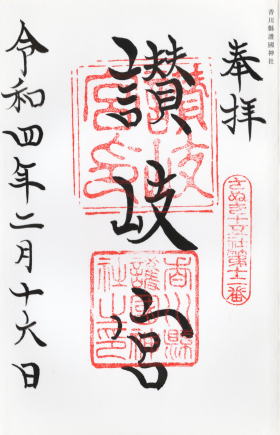 香川縣護國神社
奉拝
さぬき十五社第十二番
讃岐宮
讃岐宮印
香川縣護國神社之印
令和四年二月十六日